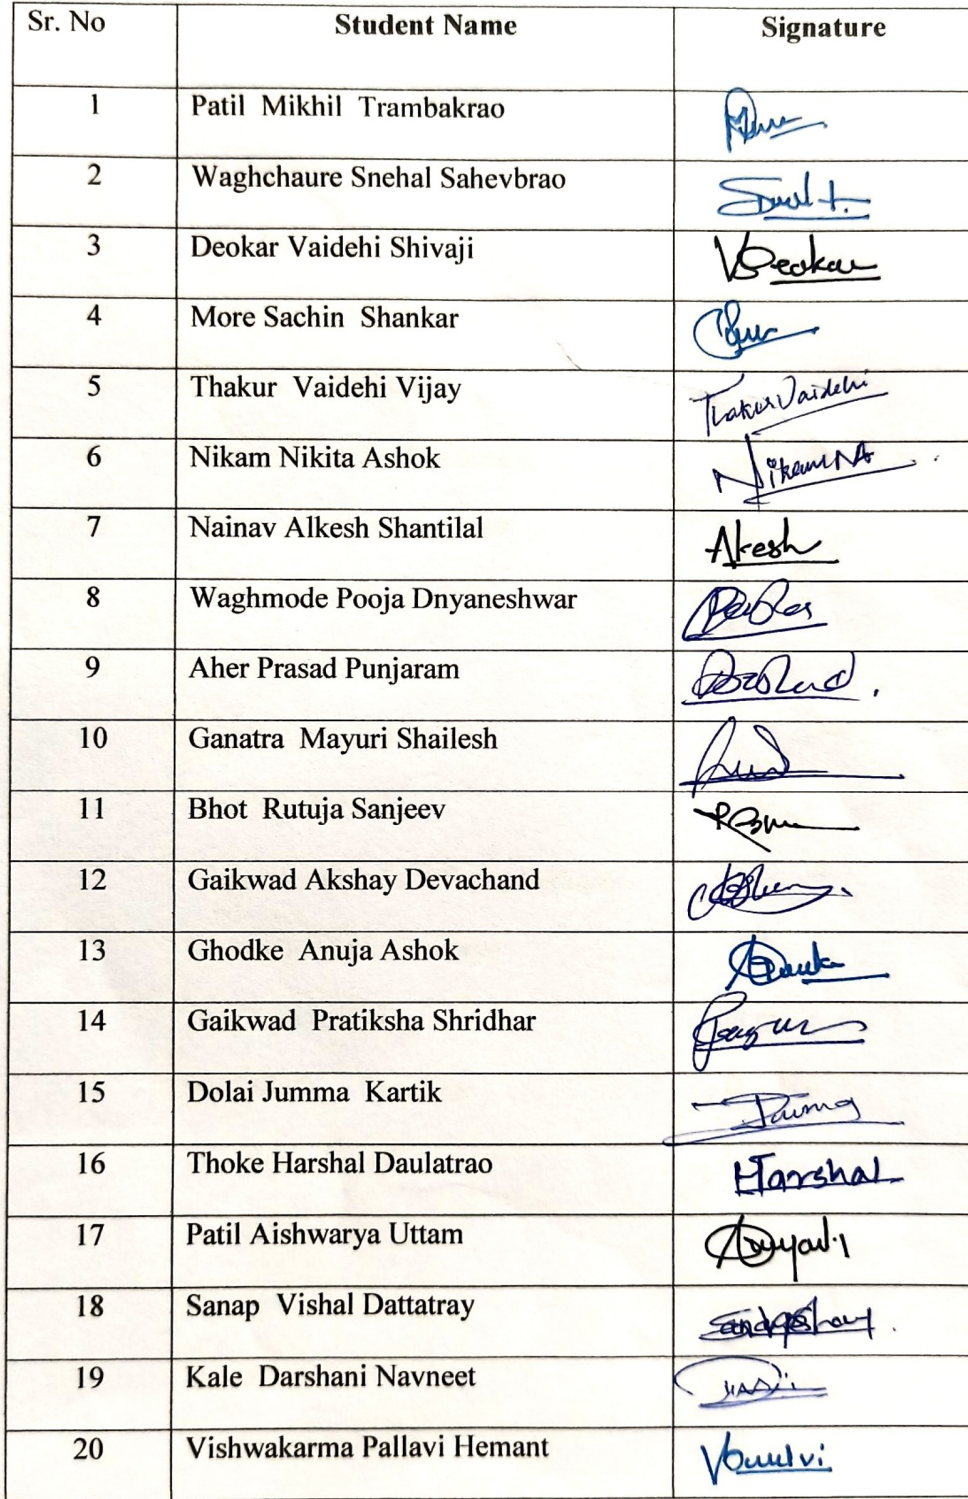 Sr. No Student Name Signature
1 Patil Mikhil Trambakrao
2 Waghchaure Snehal Sahevbrao
3 Deokar Vaidehi Shivaji VDeokar
4 More Sachin Shankar
5 Thakur Vaidehi Vijay Thakur Vaidehi
6 Nikam Nikita Ashok Nikam NA
7 Nainav Alkesh Shantilal Akesh
8 Waghmode Pooja Dnyaneshwar
9 Aher Prasad Punjaram
10 Ganatra Mayuri Shailesh
11 Bhot Rutuja Sanjeev
12 Gaikwad Akshay Devachand
13 Ghodke Anuja Ashok
14 Gaikwad Pratiksha Shridhar
15 Dolai Jumma Kartik
16 Thoke Harshal Daulatrao Harshal
17 Patil Aishwarya Uttam
18 Sanap Vishal Dattatray
19 Kale Darshani Navneet
20 Vishwakarma Pallavi Hemant